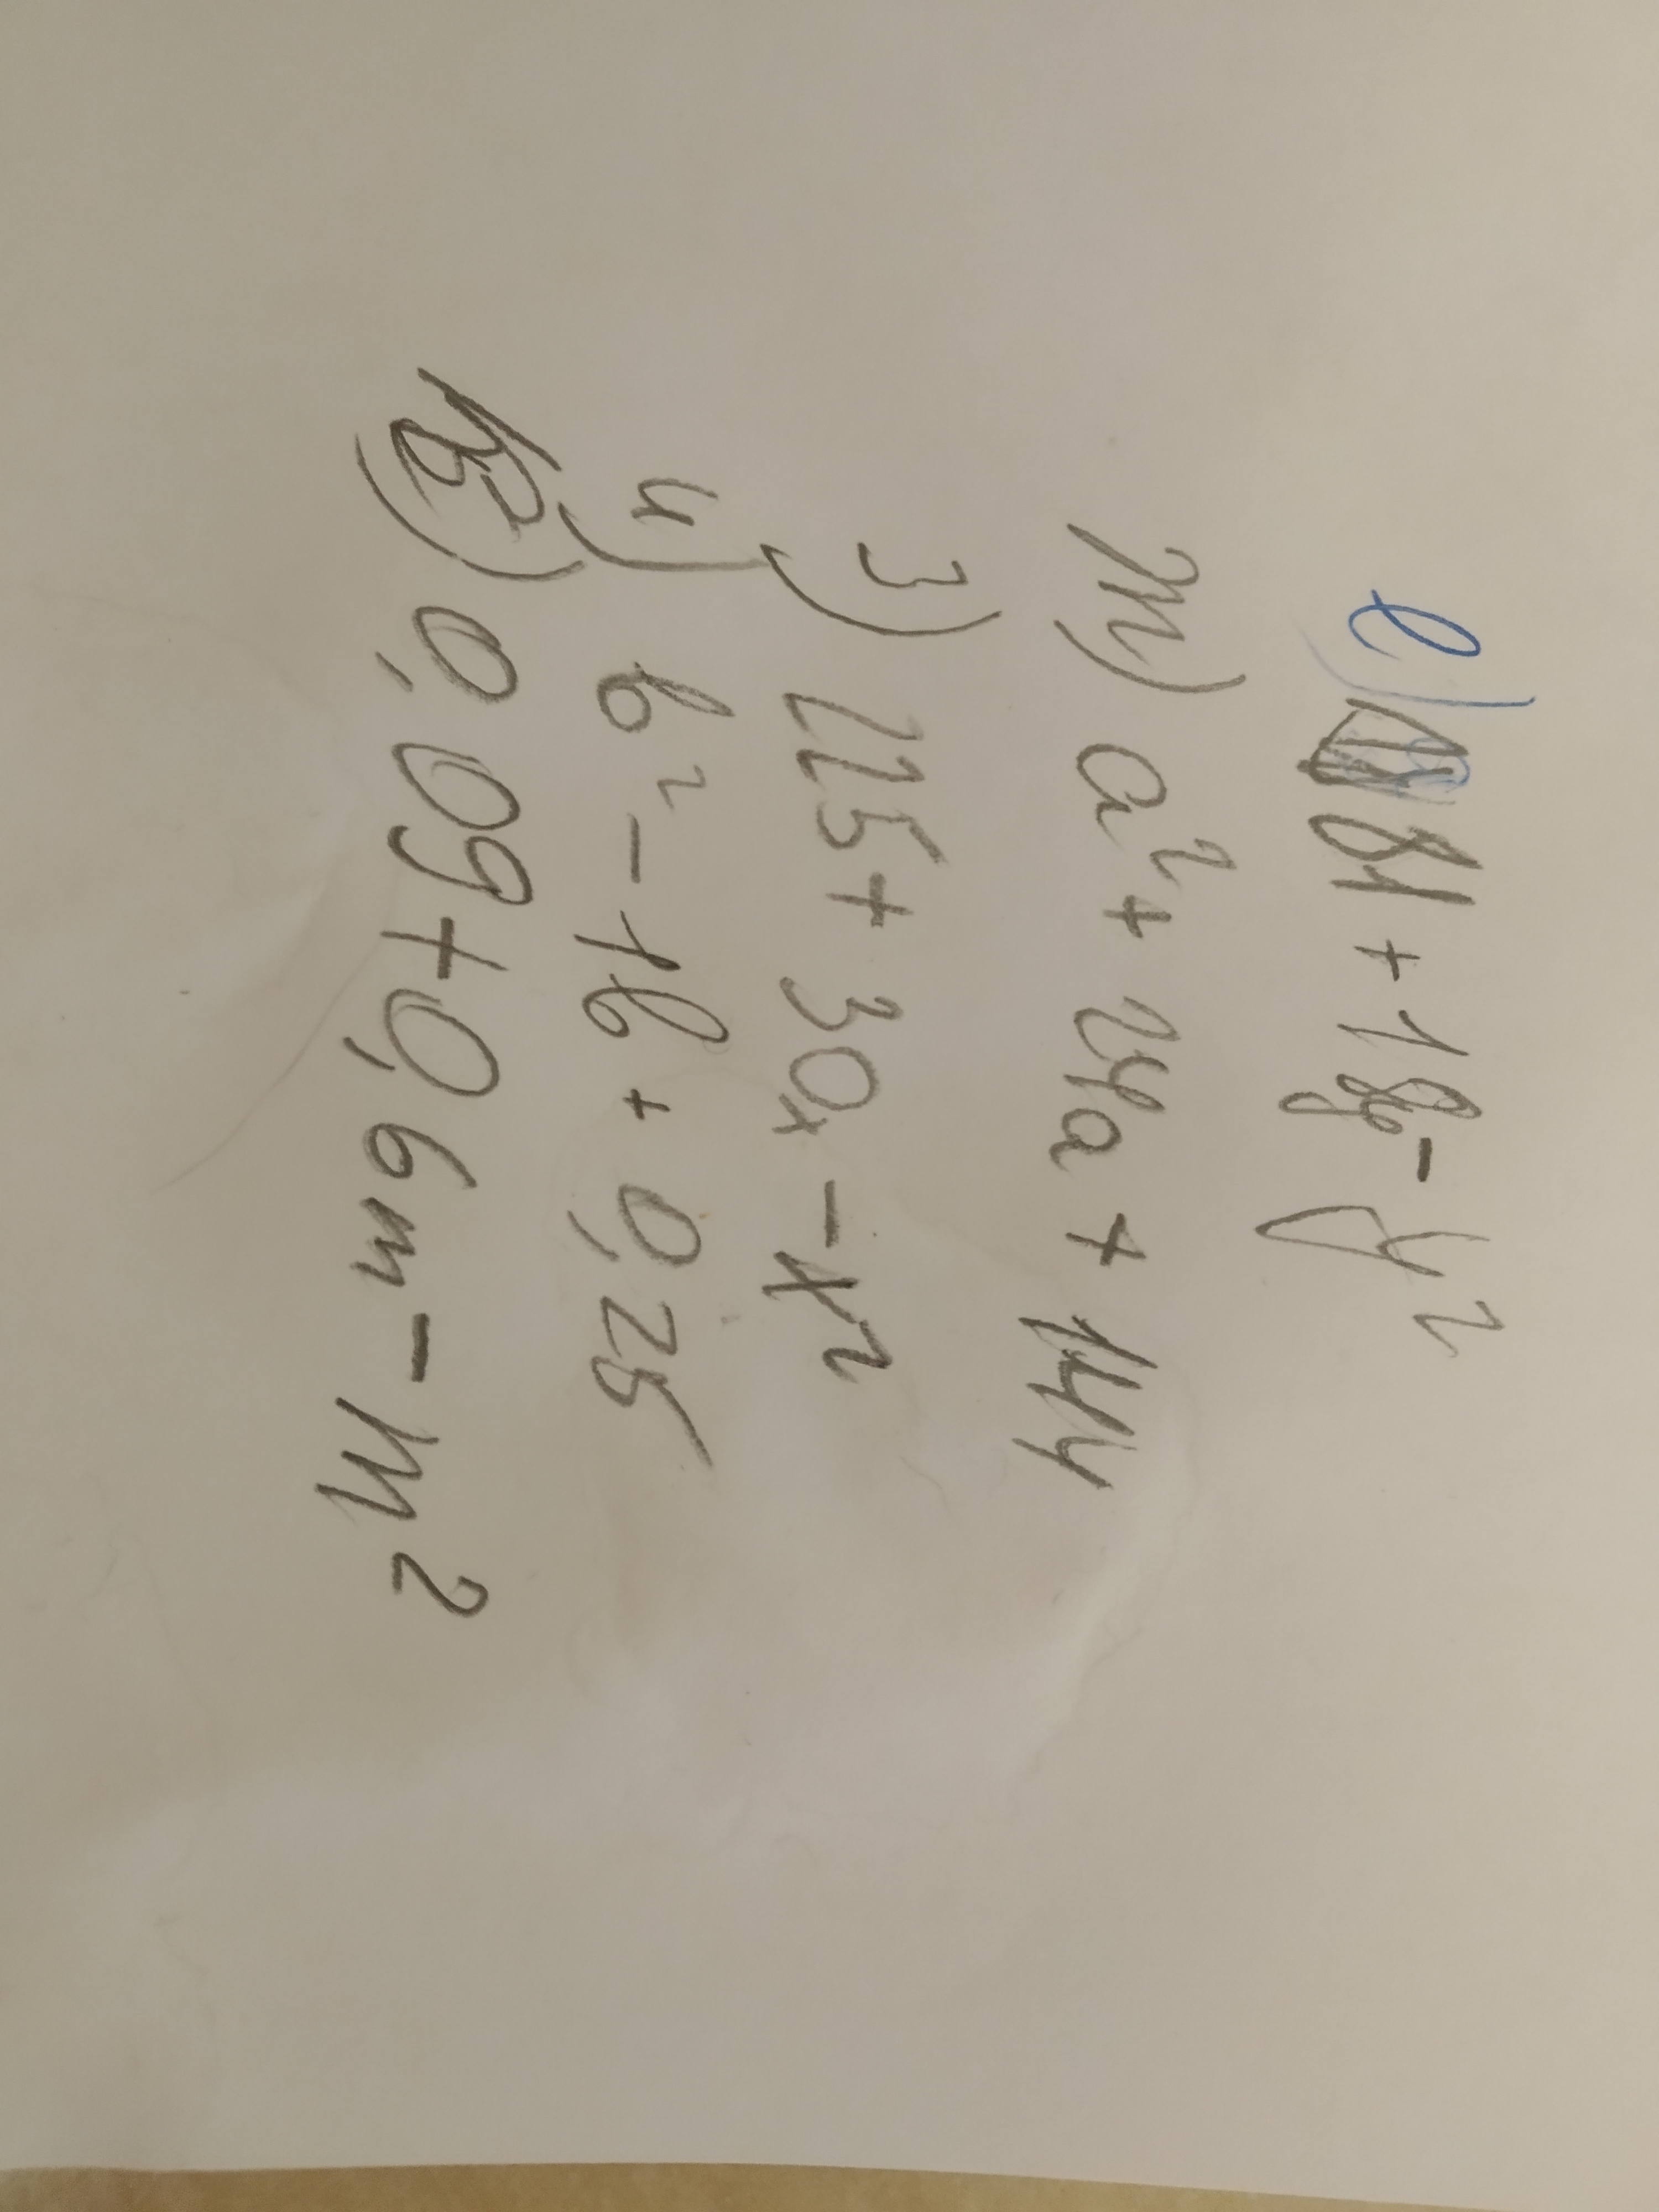 е) 81 + 18y - y²
т) a² + 24a + 144
з) 225 + 30x - x²
и) b² - 1b + 0,25
) 0,09 + 0,6m - m²